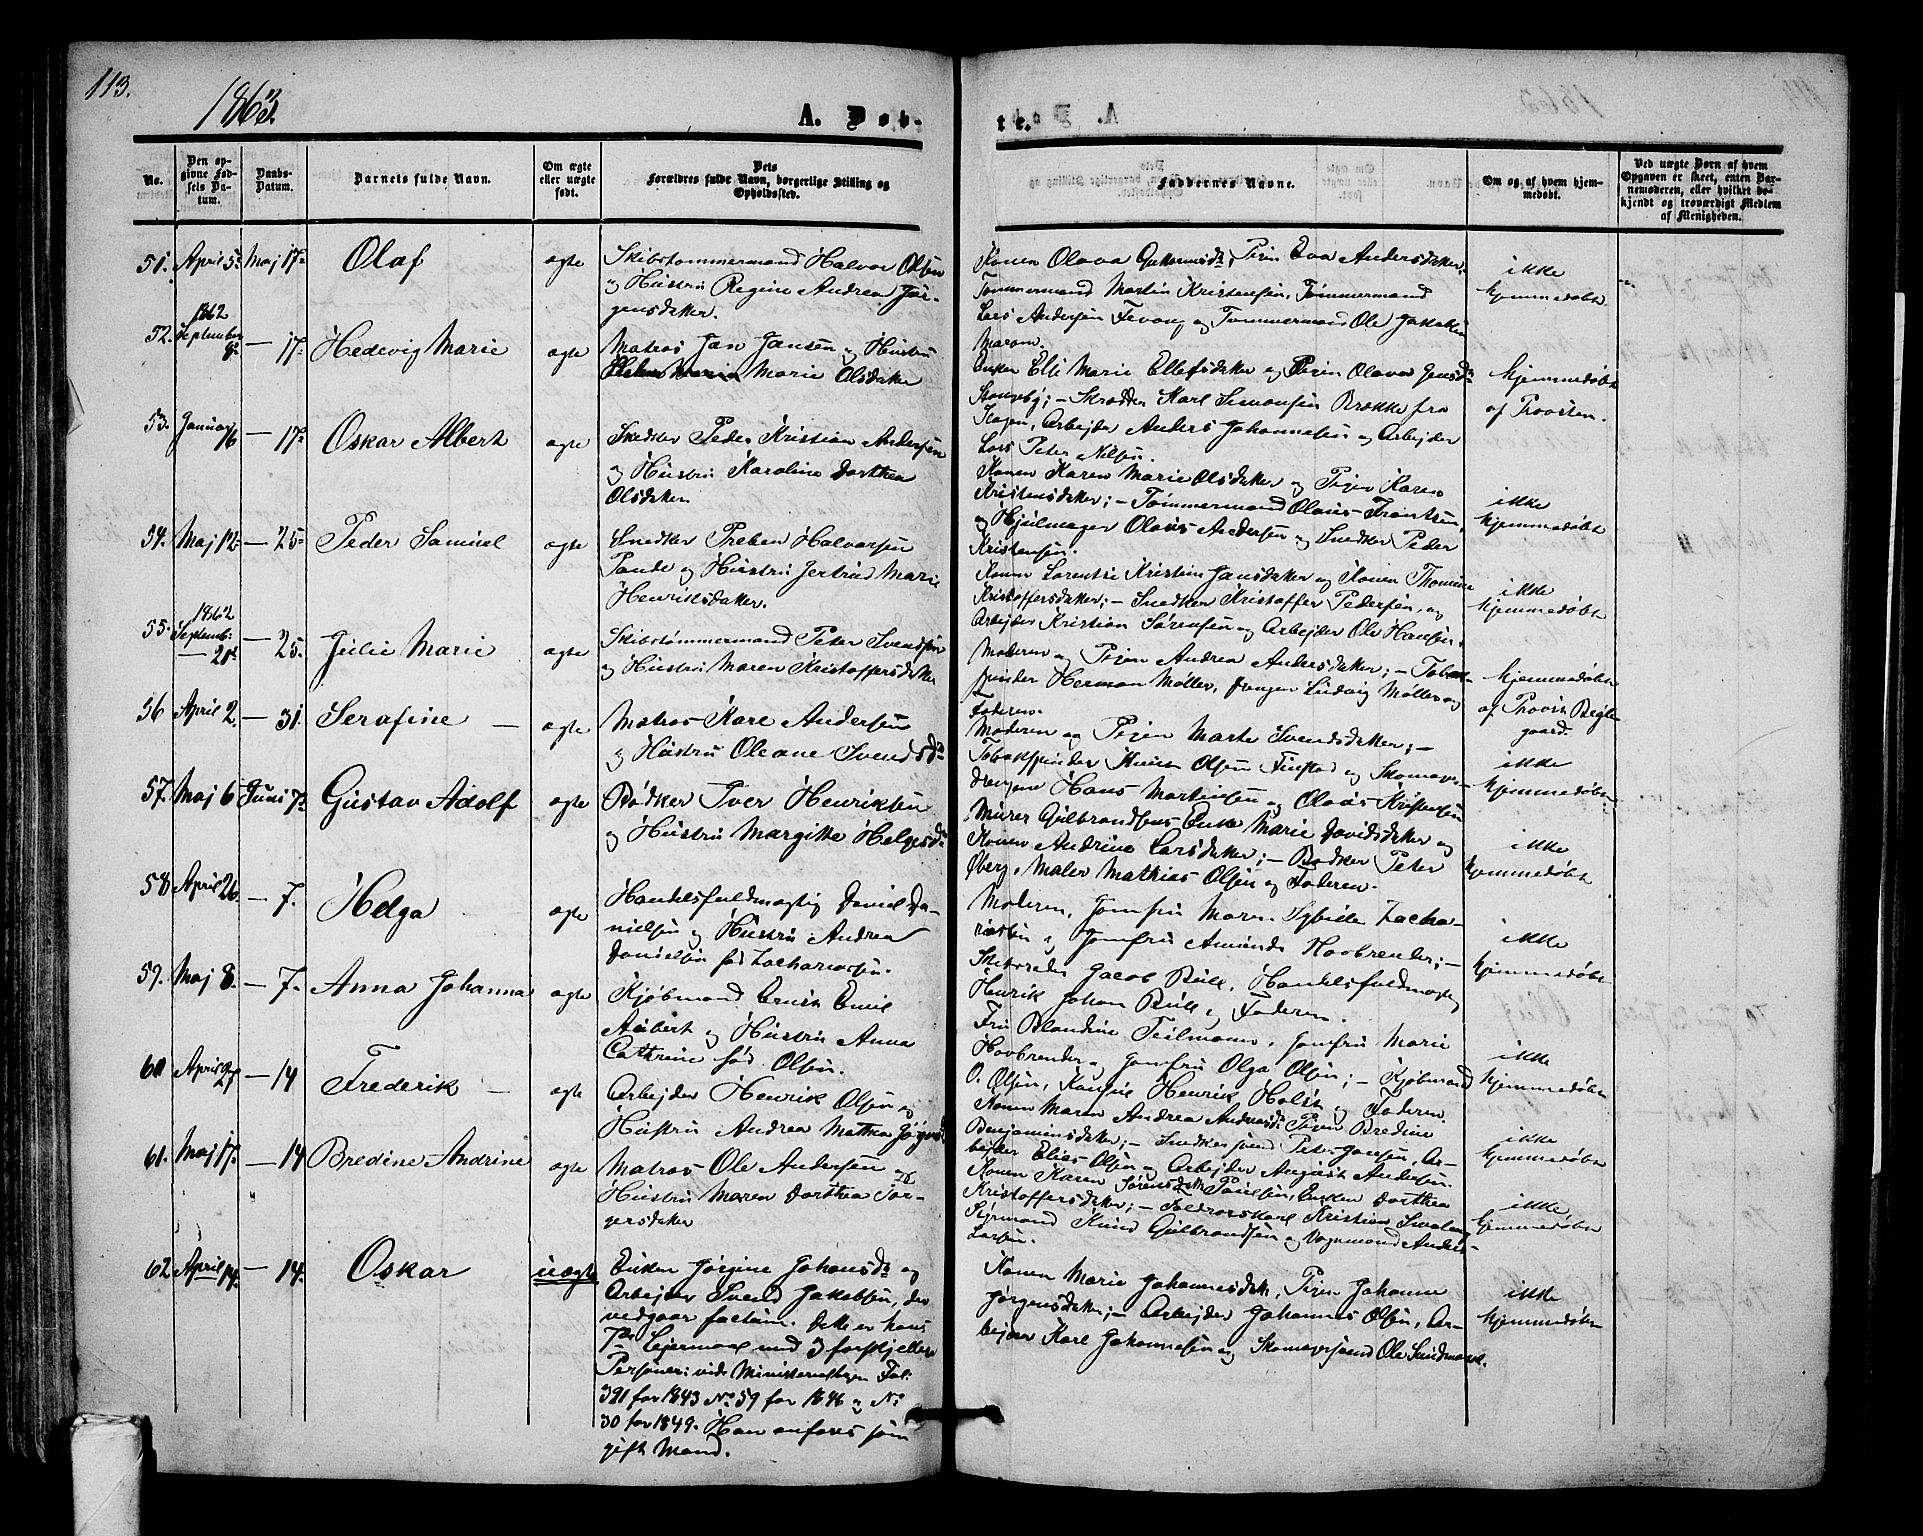 113.
1863.
A. Døb-
te.
No.
Den op-
givne Fød-
sels Da-
tum.
Daabs-
Datum.
Barnets fulde Navn.
Om ægte
eller uægte
født.
Dets
Forældres fulde Navn, borgerlige Stilling og
Opholdssted.
Faddernes Navne.
Om og af hvem hjem-
medøbt.
Ved uægte Børn af hvem
Opgaven er skeet, enten Bar-
nemoderen, eller hvilket be-
kjendt og troværdigt Medlem
af Menigheden.
51. April 5. Maj 17. Olaf ægte
Skibstømmermand Halvor Olsen
og Hustru Regine Andrea Jør-
gensdatter.
Konen Olava Guttormsdr, Pigen Eva Andersdatter,
Tømmermand Martin Kristensen, Tømmermand
Lars Andersen Fevang og Tømmermand Ole Jakobsen
ikke
hjemmedøbt
52. 1862 September 9. — 17. Hedevig Marie ægte
Matros Jan Jansen og Hustru
Marie Olsdatter
Enken Else Marie Ellefsdatter og Pigen Olava Jensdr
Skrædder Karl Simonsen Brække fra
Slagen, Arbejder Anders Johannesen og Arbejder
Lars Peter Nilsen.
hjemmedøbt
af
53. Januar 16 — 17. Oskar Albert ægte
Snedker Peder Kristian Andersen
og Hustru Karoline Dorthea
Olsdatter
Konen Karen Marie Olsdatter og Pigen Karen
Kristensdatter; — Tømmermand Olaus Frantsen,
og Hjulmager Olaus Andersen og Snedker Peder
Kristensen.
ikke
hjemmedøbt
54. Maj 12. — 25. Peder Samuel ægte
Snedker Preben Halvorsen
Tande og Hustru Jertrud Marie
Henriksdatter.
Konen Lorentse Kristine Jansdatter og Konen Thomine
Kristoffersdatter; — Snedker Kristoffer Pedersen, og
Arbejder Kristian Sørensen og Arbejder Ole Hansen.
ikke
hjemmedøbt
55. 1862 Septemb: — 21. — 25. Julie Marie ægte
Skibstømmermand Peter Svendsen
og Hustru Maren Kristoffersdatter
Moderen og Pigen Andrea Andersdatter; — Tobak-
spinder Herman Møller, Ludvig Møller og
Faderen.
hjemmedøbt
af
gaard.
56 April 2. — 31. Serafine — ægte
Matros Karl Andersen
og Hustru Oleane Svendsdr
Moderen og Pigen Marte Svendsdatter; —
Tobakspinder Knut Olsen Finstad og Skomager-
drengene Hans Martinsen og Olaus Kristensen
ikke
hjemmedøbt
57. Maj 6 Juni 7. Gustav Adolf ægte
Bødker Iver Henriksen
og Hustru Margitte Helgesdr
Murer Gulbrandsens Enke Marie Davidsdatter og
Konen Andrine Larsdatter; — Bødker Peter
Øberg, Maler Mathias Olsen og Faderen.
ikke
hjemmedøbt
58 April 26. — 7. Helga ægte
Handelsfuldmægtig Daniel Da-
nielsen og Hustru Andrea
Danielsen født Zachariassen.
Moderen, Jomfru Maren Sybille Zacha-
riassen og Jomfru Amunda Havbrender; —
Skibsreder Jacob Bull, Handelsfuldmægtig
Henrik Johan Bull og Faderen.
ikke
hjemmedøbt
59. Maj 8. — 7. Anna Johanna ægte
Kjøbmand Ernst Emil
Aubert og Hustru Anna
Cathrine født Olsen.
Fru Blandine Teilmann, Jomfru Marie
Havbrender og Jomfru Olga Olsen; — Kjøbmand
O. Olsen, Konsul Henrik Holst og Faderen.
ikke
hjemmedøbt
60 April 27. — 14 Frederik — ægte
Arbejder Henrik Olsen og
Hustru Andrea Mathea Jørgensdr
Konen Maren Andrea Andreasdr Pigen Bredine
Benjaminsdatter; — Snedkersvend Peter Jansen, Ar-
bejder Elias Olsen og Arbejder August Andersen.
ikke
hjemmedøbt
61. Maj 17. — 14 Bredine Andrine ægte
Matros Ole Andersen og
Hustru Maren Dorthea Tor-
gersdatter
Konen Karen Sørensdatter Poulsen, Enken Dorthea
Kristoffersdatter; — Kristian
Styrmand Knud Gulbrandsen og Vognmand Anders
Larsen.
ikke
hjemmedøbt
62 April 14. — 14. Oskar uægte
Enken Jørgine Johansdr og
Arbejder Svend Jakobsen, der
vedgaar factum. Dette er hans
7de Lejermaal med 3 forskjellige
Personer: vide Ministerialbogen Fol:
391 for 1843 No 59 for 1846 og No
30 for 1849. Han anføres som
gift Mand.
Konen Marie Johannesdatr, Pigen Johanne
Jørgensdatter; — Arbejder Johannes Olsen, Ar-
bejder Karl Johannesen og Skomagersvend Ole
ikke
hjemmedøbt